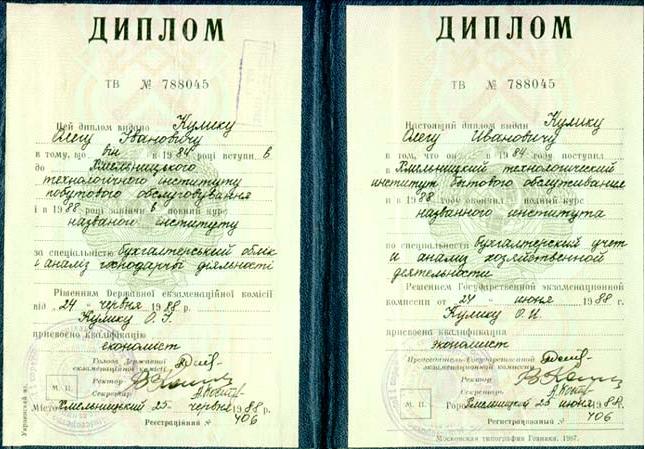 ДИПЛОМ
ТВ № 788045
Цей диплом видано Кулику
Олегу Івановичу
в тому, що він в 1984 році вступив в
до Хмельницького
технологічного інституту
побутового обслуговування
і в 1988 році закінчив повний курс
названого інституту
за спеціальністю бухгалтерський облік
і аналіз господарчої діяльності
Рішенням Державної екзаменаційної комісії
від „24“ червня 1988 р.
Кулику О. І.
присвоєно кваліфікацію
економіст
Голова Державної
екзаменаційної комісії
Ректор
Секретар
М. П.
Місто Хмельницький 25 червня 1988 р.
Реєстраційний № 406
Украинский яз.
ДИПЛОМ
ТВ № 788045
Настоящий диплом выдан Кулику
Олегу Ивановичу
в том, что он в 1984 году поступил
в Хмельницкий технологический
институт бытового обслуживания
и в 1988 году окончил полный курс
названного института
по специальности бухгалтерский учет
и анализ хозяйственной
деятельности
Решением Государственной экзаменационной
комиссии от „24“ июня 1988 г.
Кулику О. И.
присвоена квалификация
экономист
Председатель Государственной
экзаменационной комиссии
Ректор
Секретарь
М. П.
Город Хмельницкий 25 июня 1988 г.
Регистрационный № 406
Московская типография Гознака, 1987.